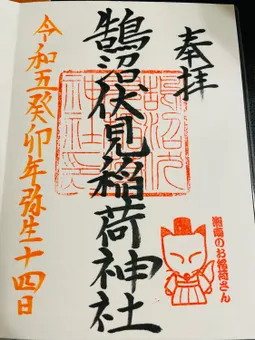 奉拝
鵠沼伏見稲荷神社
令和五癸卯年弥生十四日
湘南のお稲荷さん